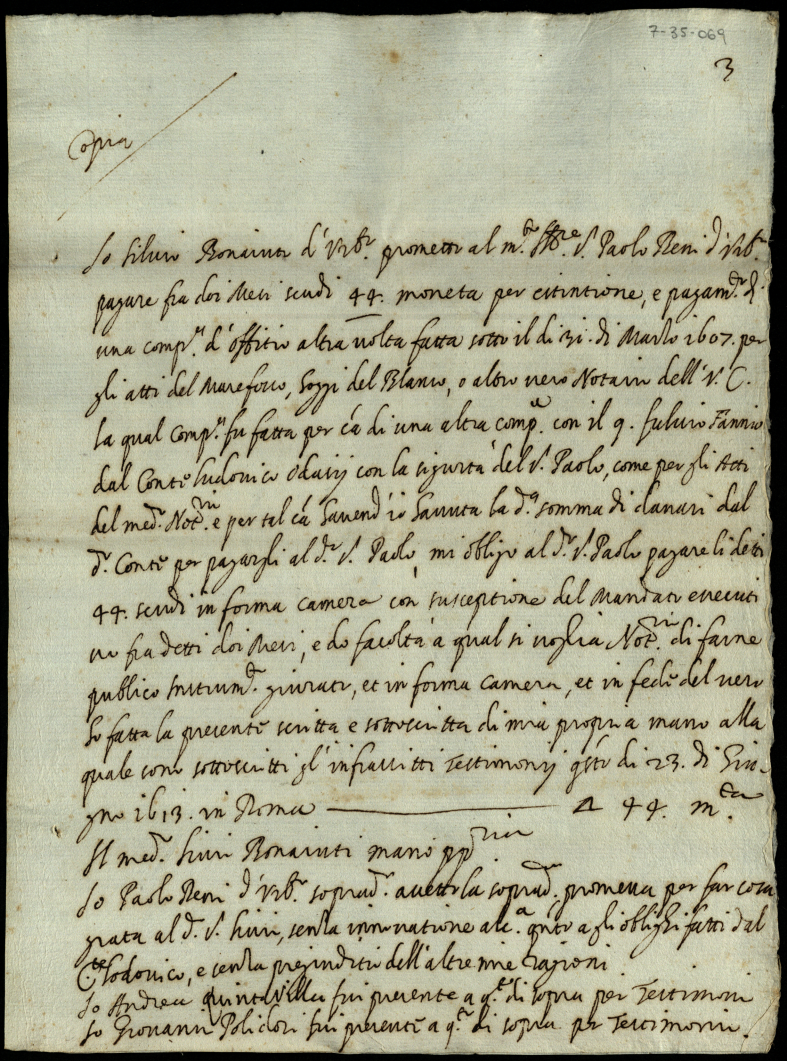 7-35-069
3
Copia
Io Silvio Bonaiuti d'Urb.º prometto al m.to Ill.re S.r Paolo Reni d'Urb.º
pagare fra doi Mesi scudi 44. moneta per estintione, e pagam.to d'
una comp.ª d'offitio altra volta fatta sotto il di 31. di Marzo 1607. per
gli atti del Marefosco, Soggi del Blanco, o altro vero Notario dell'A. C.
la qual Comp.ª fu fatta per cá di una altra comp.ª con il q. fulvio Fannio
dal Conte Ludovico Odasij con la sigurtà del S.r Paolo, come per gli Atti
del med.º Not.rio e per tal cá havend'io havuta la d.ª somma di danari dal
d.º Conte per pagargli al d.º S.r Paolo, mi obligo al d.º S.r Paolo pagare li detti
44. scudi in forma camera con susceptione del Mandato executi
vo fra detti doi Mesi, e do facoltà a qual si voglia Not.rio di farne
publico Instrum.to giurato, et in forma camera, et in fede del vero
ho fatta la presente scritta e sottoscritta di mia propria mano alla
quale sono sottoscritti gl'infrascritti Testimonij q.sto di 23. di Giu-
gno 1613. in Roma 44. m.ta
Il med.º Silvio Bonaiuti mano pp.ria
Io Paolo Reni d'Urb.º soprad.º accetto la soprad.ª promessa per far cosa
grata al d.º S.r Silvio, senza innovatione alc.ª q.nto a gli oblighi fatti dal
C.te Lodovico, e senza pregiuditio dell'altre mie ragioni
Io Andrea Quintavilla fui presente a q.to di sopra per Testimonio
Io Giovanni Polidori fui presente a q.to di sopra per Testimonio.